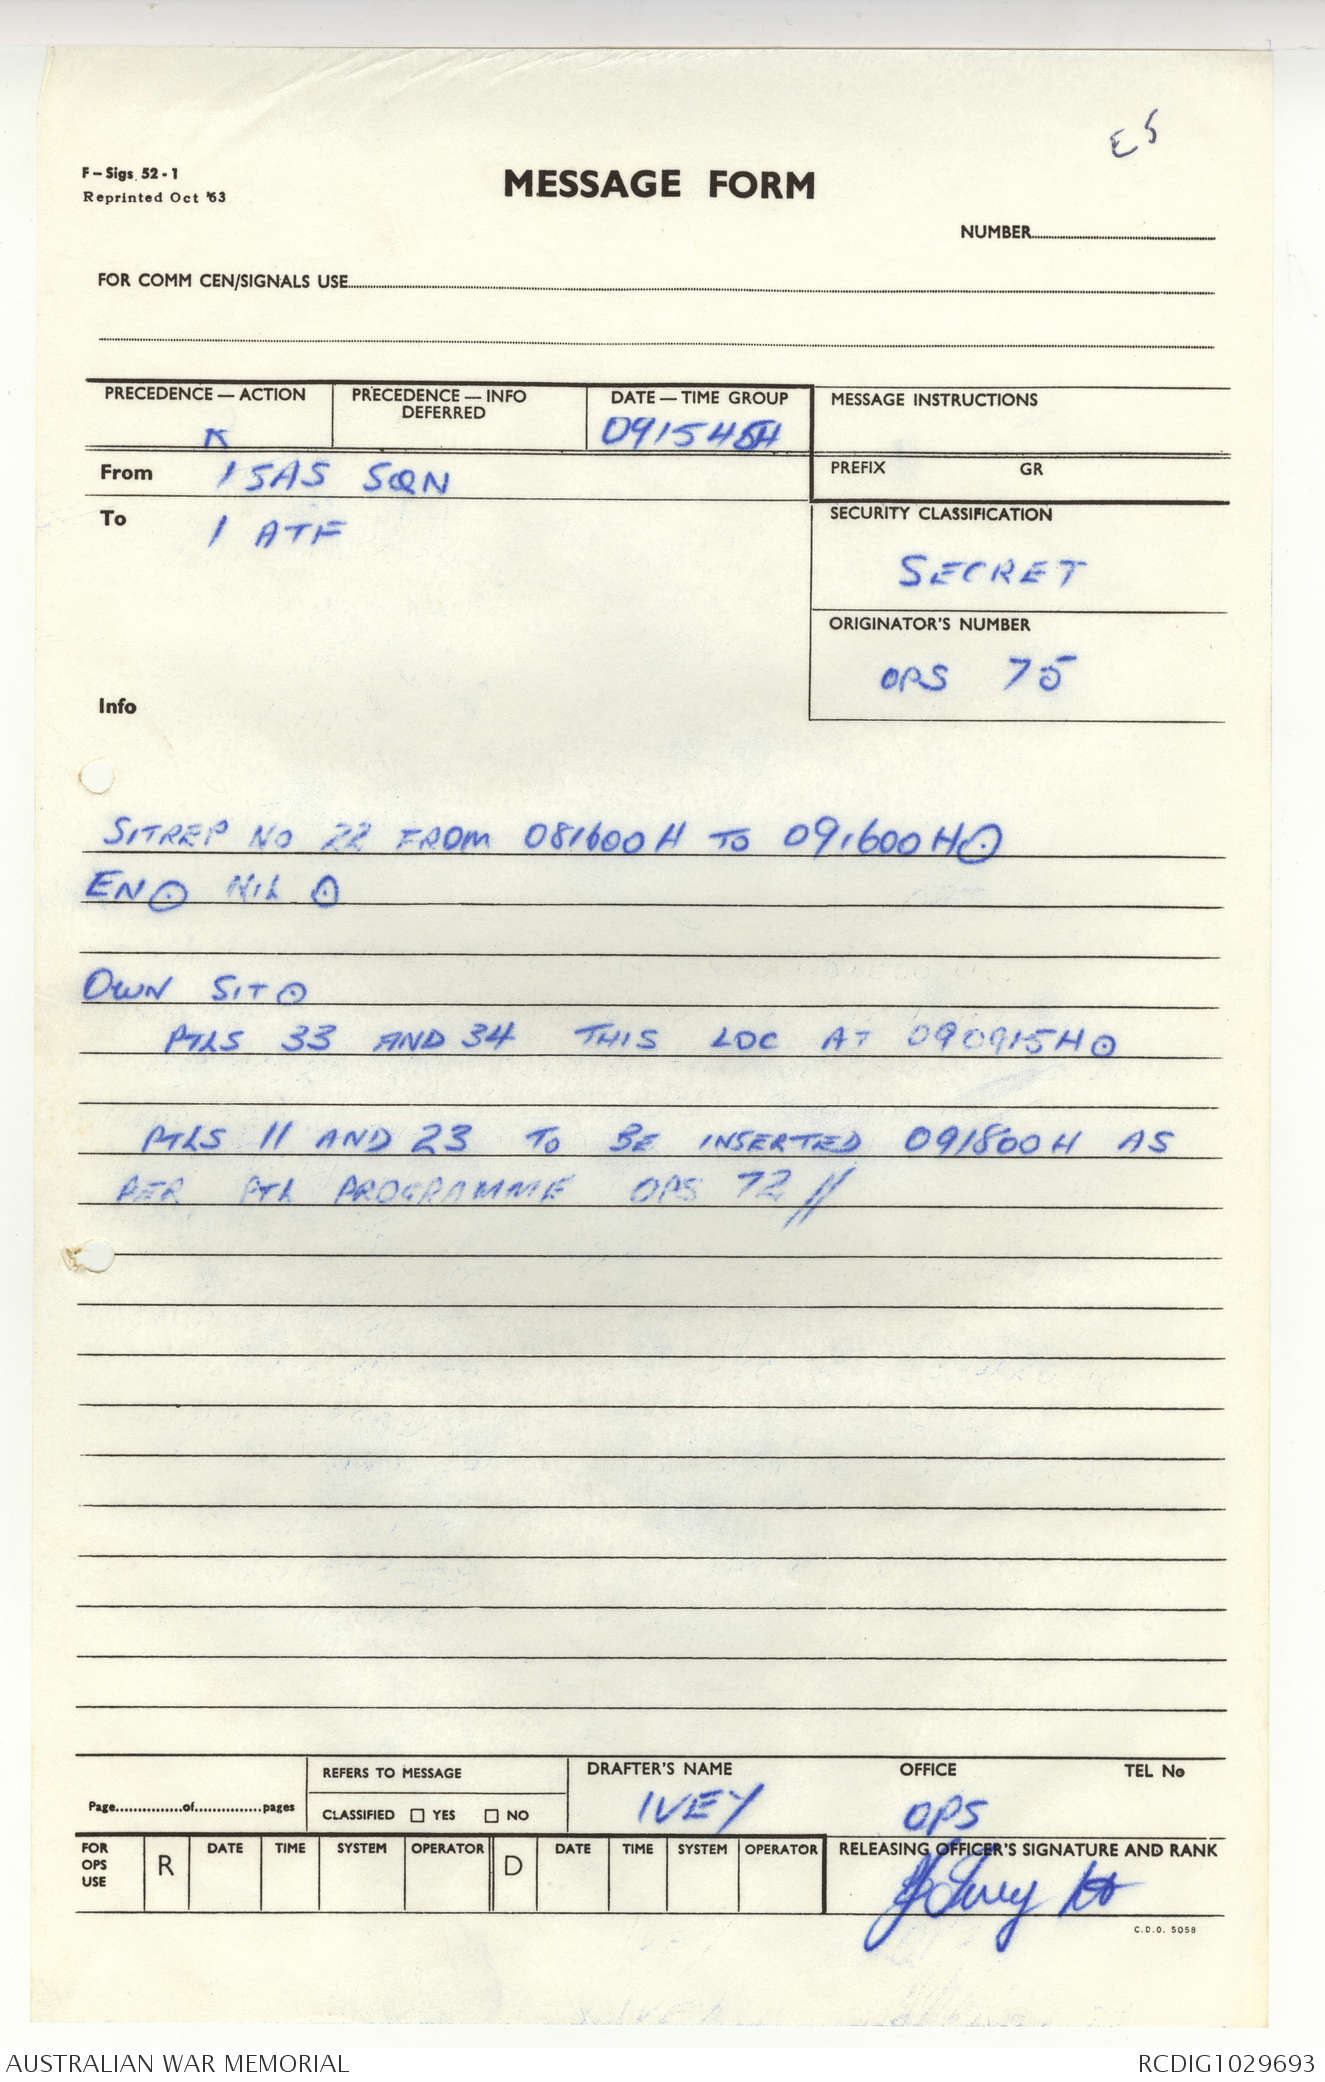 E5
F - Sigs. 52 - 1
Reprinted Oct '63
MESSAGE FORM
NUMBER
FOR COMM CEN/SIGNALS USE
PRECEDENCE — ACTION
PRECEDENCE — INFO
DEFERRED
DATE — TIME GROUP
MESSAGE INSTRUCTIONS
R
091545H
From 1 SAS SQN
PREFIX GR
To 1 ATF
SECURITY CLASSIFICATION
SECRET
ORIGINATOR'S NUMBER
OPS 75
Info
SITREP NO 22 FROM 081600H TO 091600H⊙
EN⊙ NIL ⊙
OWN SIT⊙
PTLS 33 AND 34 THIS LOC AT 090915H⊙
PTLS 11 AND 23 TO BE INSERTED 091800H AS
PER PTL PROGRAMME OPS 72 //
Page...............of...............pages
REFERS TO MESSAGE
CLASSIFIED ☐ YES ☐ NO
DRAFTER'S NAME OFFICE TEL No
IVEY OPS
FOR
OPS
USE
R DATE TIME SYSTEM OPERATOR D DATE TIME SYSTEM OPERATOR
RELEASING OFFICER'S SIGNATURE AND RANK
Ivey Lt
C.D.O. 5058
AUSTRALIAN WAR MEMORIAL RCDIG1029693